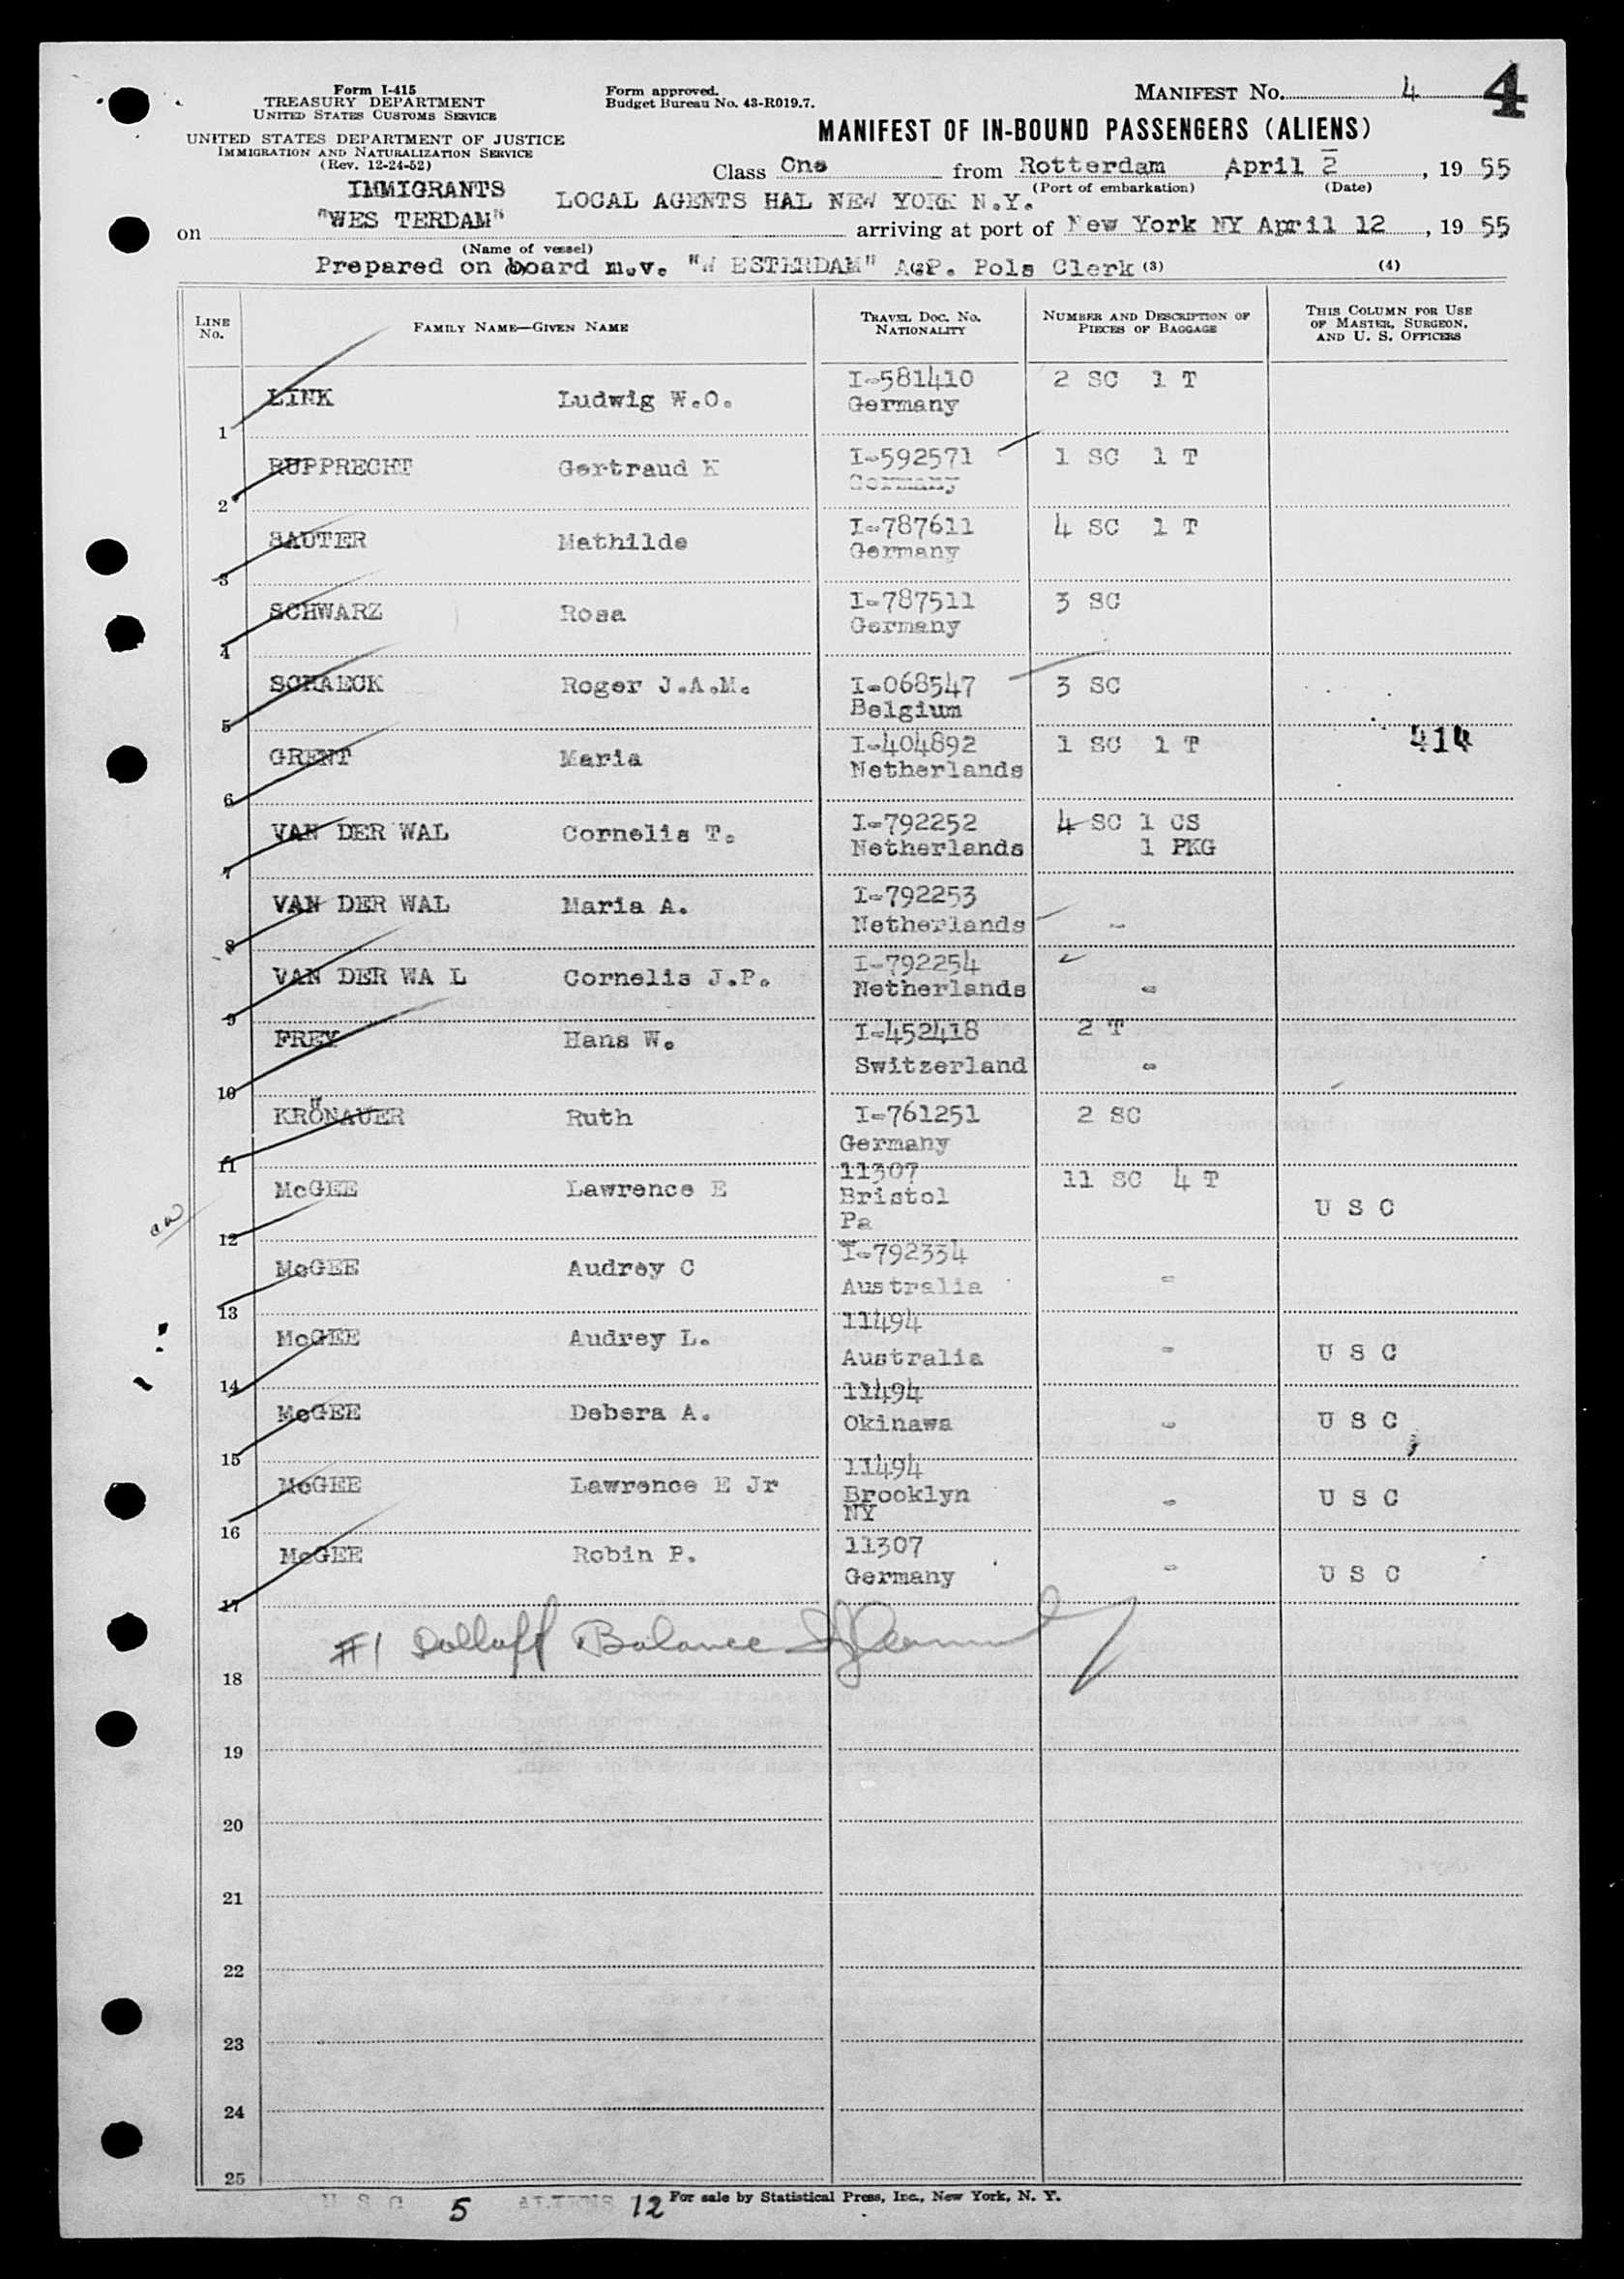 MANIFEST NO. 4 4
Form I-415
TREASURY DEPARTMENT
UNITED STATES CUSTOMS SERVICE
Form approved.
Budget Bureau No. 43-R019.7.
UNITED STATES DEPARTMENT OF JUSTICE
IMMIGRATION AND NATURALIZATION SERVICE
(Rev. 12-24-52)
MANIFEST OF IN-BOUND PASSENGERS (ALIENS)
Class One from Rotterdam , April 2 , 19 55
(Port of embarkation) (Date)
IMMIGRANTS
LOCAL AGENTS HAL NEW YORK N.Y.
on "WES TERDAM" arriving at port of New York NY April 12 , 19 55
(Name of vessel)
Prepared on board m.v. "W ESTERDAM" A.P. Pols Clerk (3) (4)
LINE NO. FAMILY NAME—GIVEN NAME TRAVEL DOC. NO. NATIONALITY NUMBER AND DESCRIPTION OF PIECES OF BAGGAGE THIS COLUMN FOR USE OF MASTER, SURGEON, AND U. S. OFFICERS
1 LINK Ludwig W.O. I-581410 Germany 2 SC 1 T
2 RUPPRECHT Gertraud K I-592571 Germany 1 SC 1 T
3 SAUTER Mathilde I-787611 Germany 4 SC 1 T
4 SCHWARZ Rosa I-787511 Germany 3 SC
5 SCHAECK Roger J.A.M. I-068547 Belgium 3 SC
6 GRENT Maria I-404892 Netherlands 1 SC 1 T 414
7 VAN DER WAL Cornelis T. I-792252 Netherlands 4 SC 1 CS 1 PKG
8 VAN DER WAL Maria A. I-792253 Netherlands -
9 VAN DER WA L Cornelis J.P. I-792254 Netherlands -
10 FREY Hans W. I-452418 Switzerland 2 T -
11 KRÖNAUER Ruth I-761251 Germany 2 SC
12 McGEE Lawrence E 11307 Bristol Pa 11 SC 4 T U S C
13 McGEE Audrey C I-792334 Australia -
14 McGEE Audrey L. 11494 Australia - U S C
15 McGEE Debera A. 11494 Okinawa - U S C
16 McGEE Lawrence E Jr 11494 Brooklyn NY - U S C
17 McGEE Robin P. 11307 Germany - U S C
#1 Balance
18
19
20
21
22
23
24
25
U S C 5 ALIENS 12 For sale by Statistical Press, Inc., New York, N. Y.